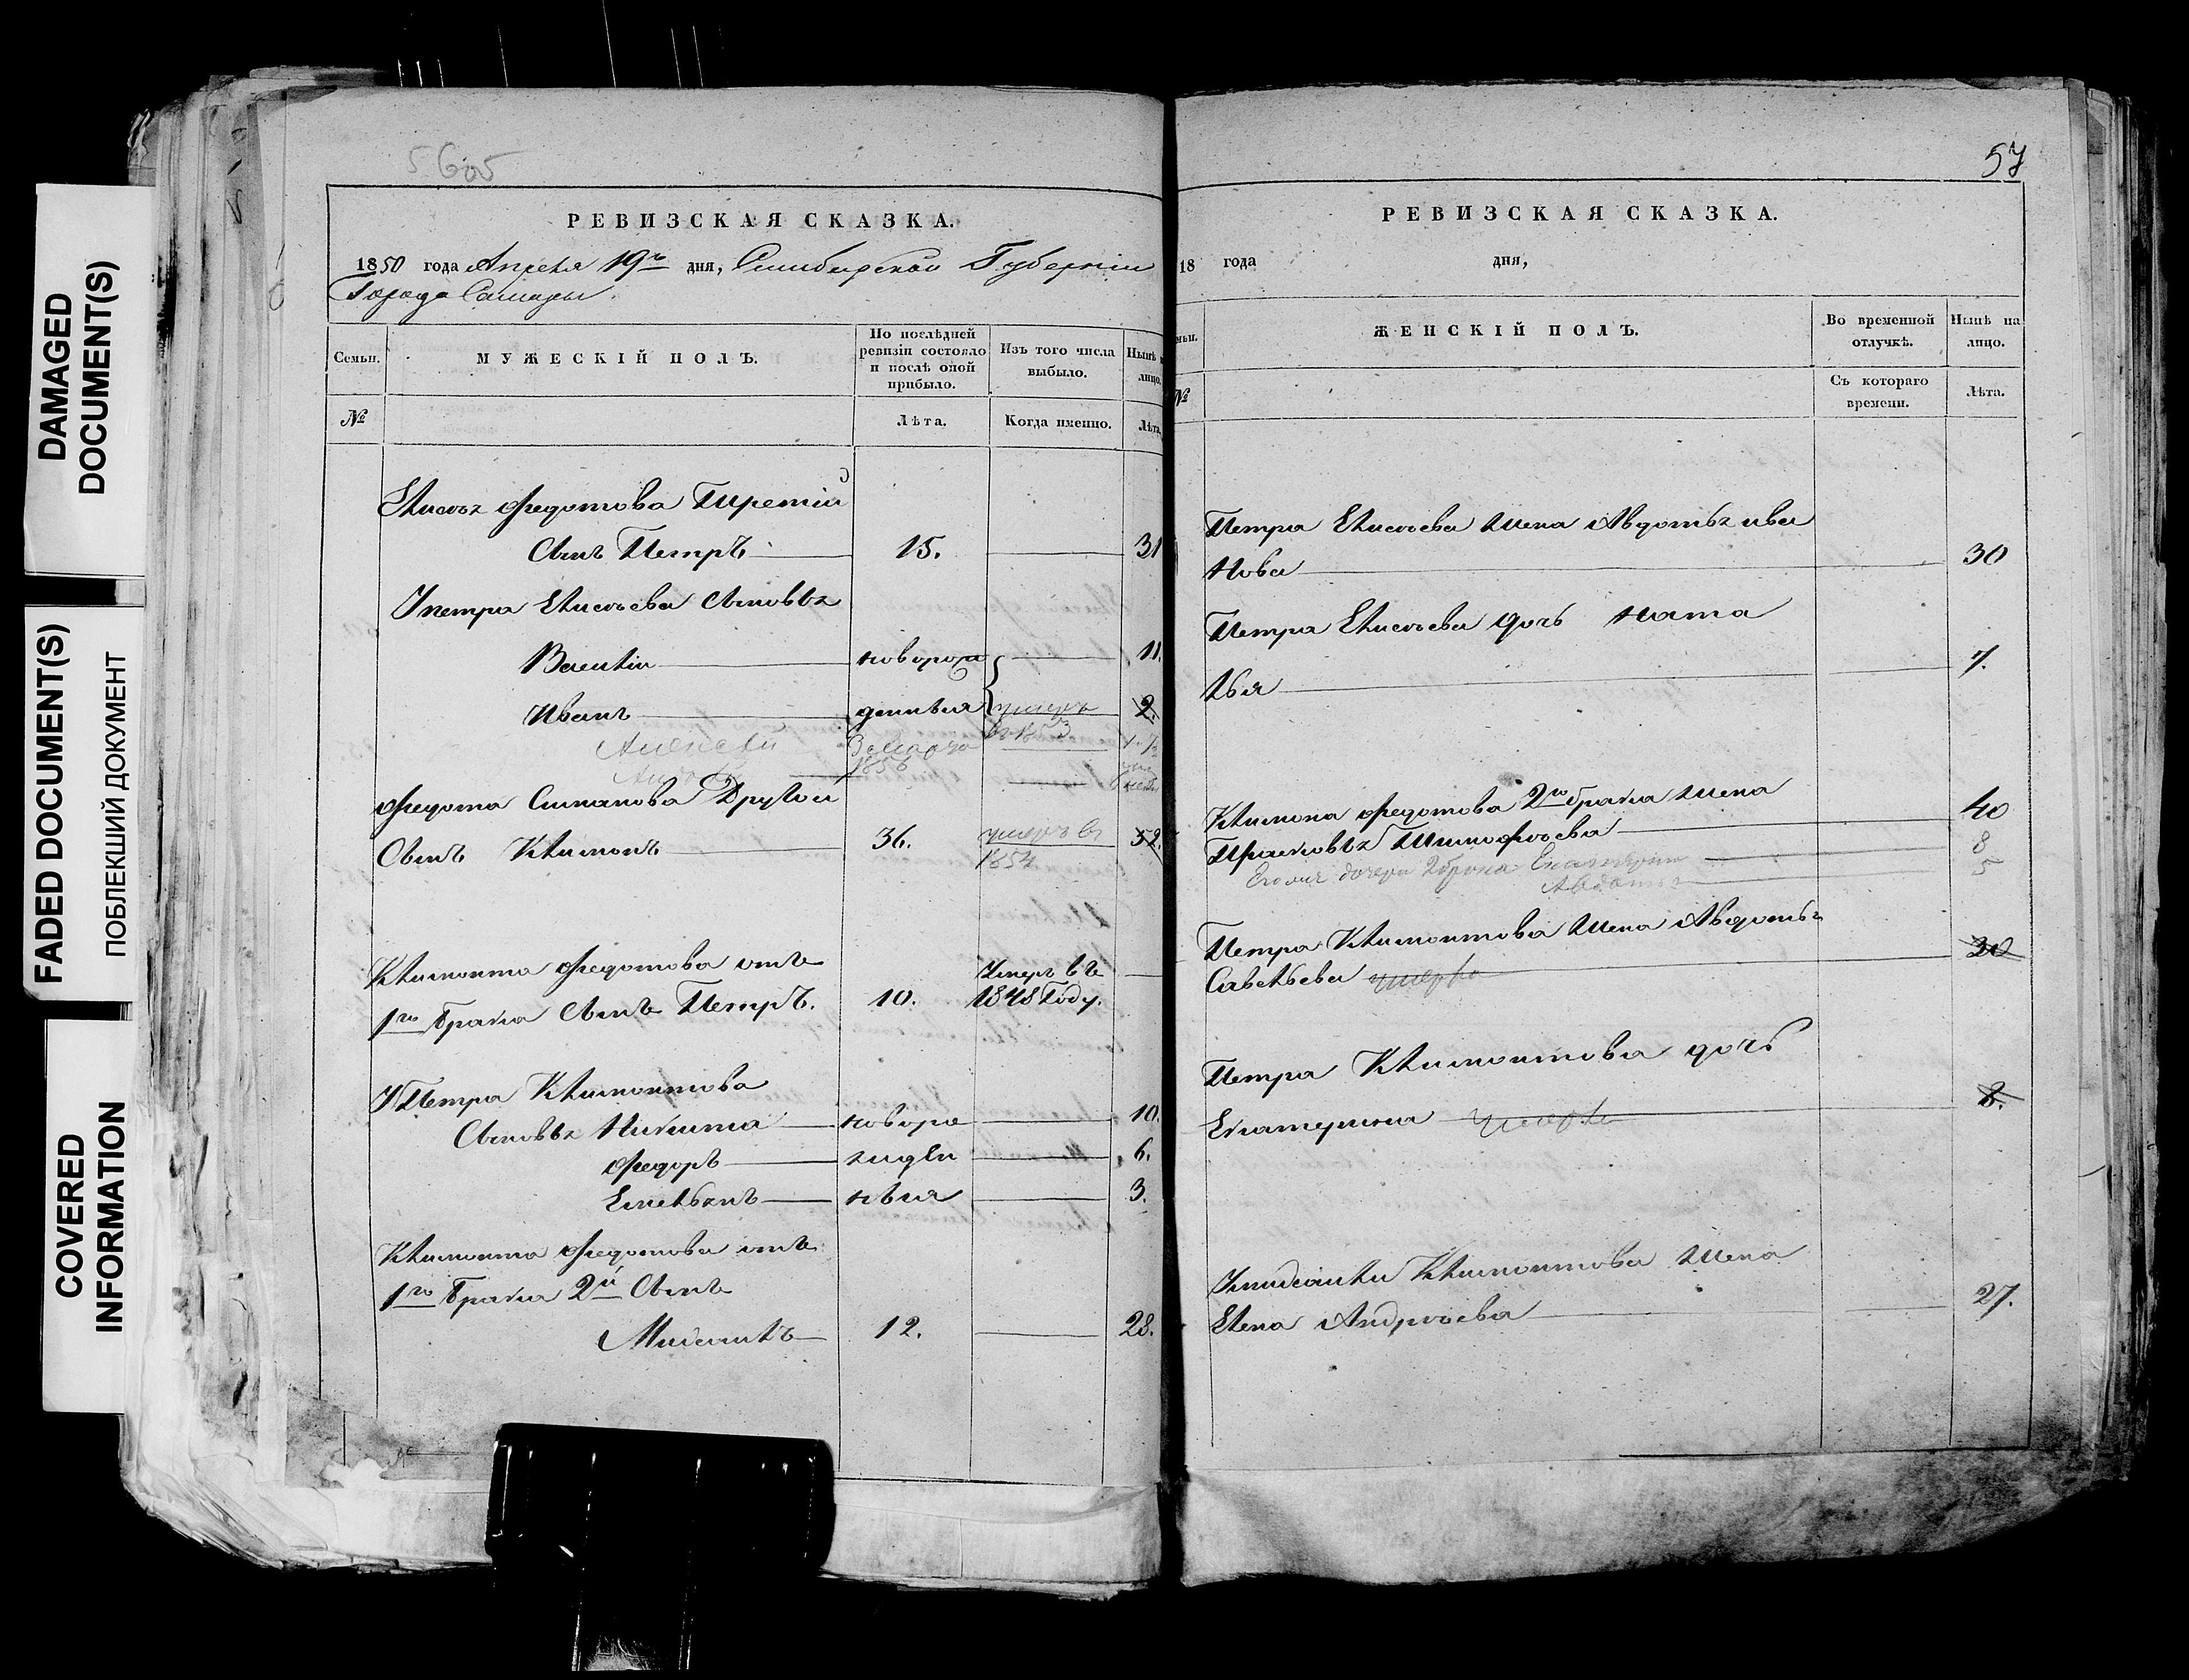 DAMAGED
DOCUMENT(S)
FADED DOCUMENT(S)
ПОБЛЕКШИЙ ДОКУМЕНТ
COVERED
INFORMATION
РЕВИЗСКАЯ СКАЗКА.
1850 года Апреля 19го дня, Симбирской Губернии
Города Самары.
Семьи. МУЖЕСКІЙ ПОЛЪ. По послѣдней ревизіи состояло и послѣ оной прибыло. Изъ того числа выбыло. Нынѣ лицо.
№ Лѣта. Когда именно. Лѣта.
Федотова Третій
Сынъ Петръ 15. 31
Упетра Елисѣева Сыновья
Василій новорож 11.
Иванъ денныя умеръ 2.
Алексей въ 1853
1856
Федота Другой
Сынъ Климонъ 36. умеръ въ 52.
1854
Климонта Федотова отъ Умеръ въ
1го брака Сынъ Петръ. 10. 1848 Году.
У Петра Климонтова
Сыновья Никита новоро 10.
Федоръ жиден 6.
Емельянъ ныя 3.
Климонта Федотова отъ
1го брака 2й Сынъ
12. 28.
57
РЕВИЗСКАЯ СКАЗКА.
18 года дня,
ЖЕНСКІЙ ПОЛЪ. Во временной отлучкѣ. Нынѣ на лицо.
№ Съ котораго времени. Лѣта.
Петра Елисѣева жена Авдотья ива
нова 30
Петра Елисѣева дочь Ната
лья 7.
Климона Федотова 2го брака жена 40
Прасковья Тимофѣева 8
Екатерина 5
Авдотья
Петра Климонтова жена Авдотья
Савельева умерла 30
Петра Климонтова дочь
Екатерина умерла 8.
Климонтова жена
Елена Андрѣева 27.